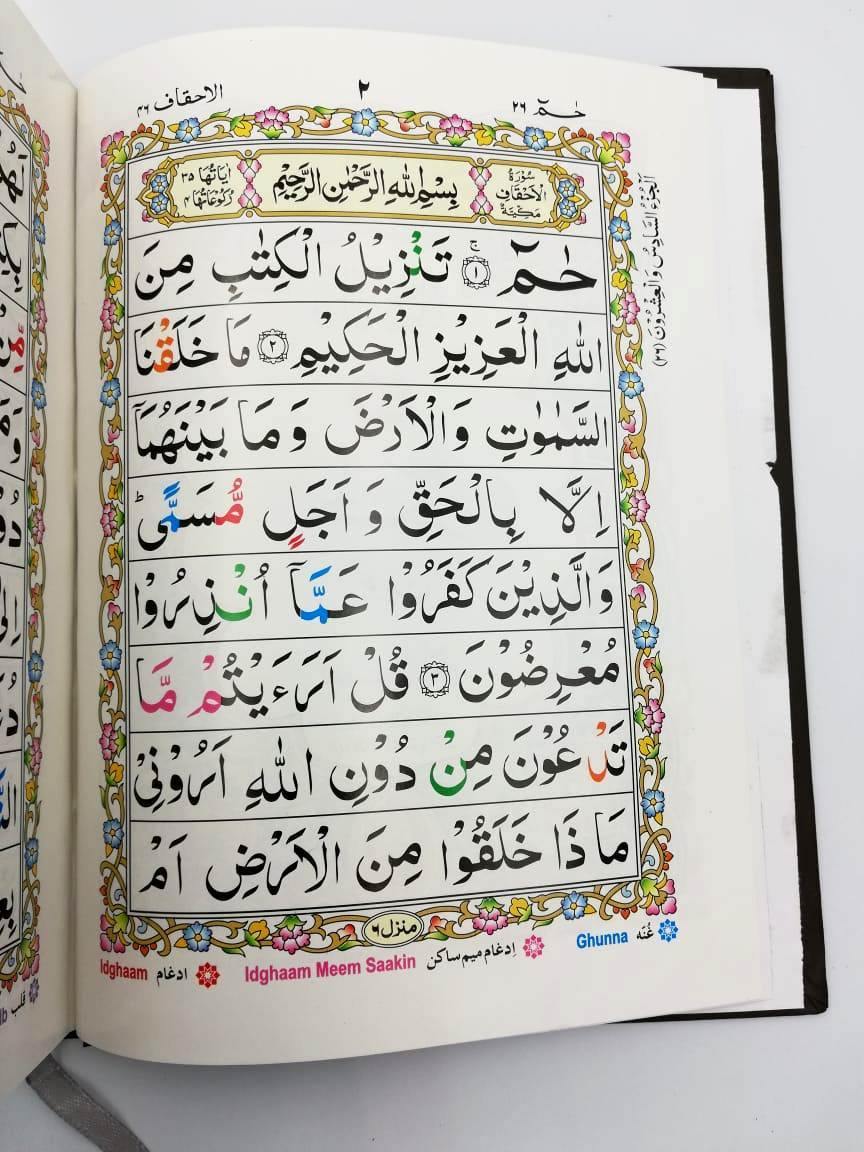 حٰمٓ ٢٦
٢
الاحقاف ٤٦
سُوْرَةُ الْاَحْقَافِ مَكِّيَّةٌ
بِسْمِ اللّٰهِ الرَّحْمٰنِ الرَّحِيْمِ
اٰيَاتُهَا ٣٥
رُكُوْعَاتُهَا ٤
حٰمٓ ۚ ﴿١﴾ تَنْزِيْلُ الْكِتٰبِ مِنَ
اللّٰهِ الْعَزِيْزِ الْحَكِيْمِ ﴿٢﴾ مَا خَلَقْنَا
السَّمٰوٰتِ وَالْاَرْضَ وَمَا بَيْنَهُمَاۤ
اِلَّا بِالْحَقِّ وَ اَجَلٍ مُّسَمًّی ؕ
وَالَّذِيْنَ كَفَرُوْا عَمَّاۤ اُنْذِرُوْا
مُعْرِضُوْنَ ﴿٣﴾ قُلْ اَرَءَيْتُمْ مَّا
تَدْعُوْنَ مِنْ دُوْنِ اللّٰهِ اَرُوْنِیْ
مَاذَا خَلَقُوْا مِنَ الْاَرْضِ اَمْ
اَلْجُزْءُ السَّادِسُ وَالْعِشْرُوْنَ (٢٦)
منزل ٦
غُنّه Ghunna
اِدغام میم ساکن Idghaam Meem Saakin
ادغام Idghaam
قلب